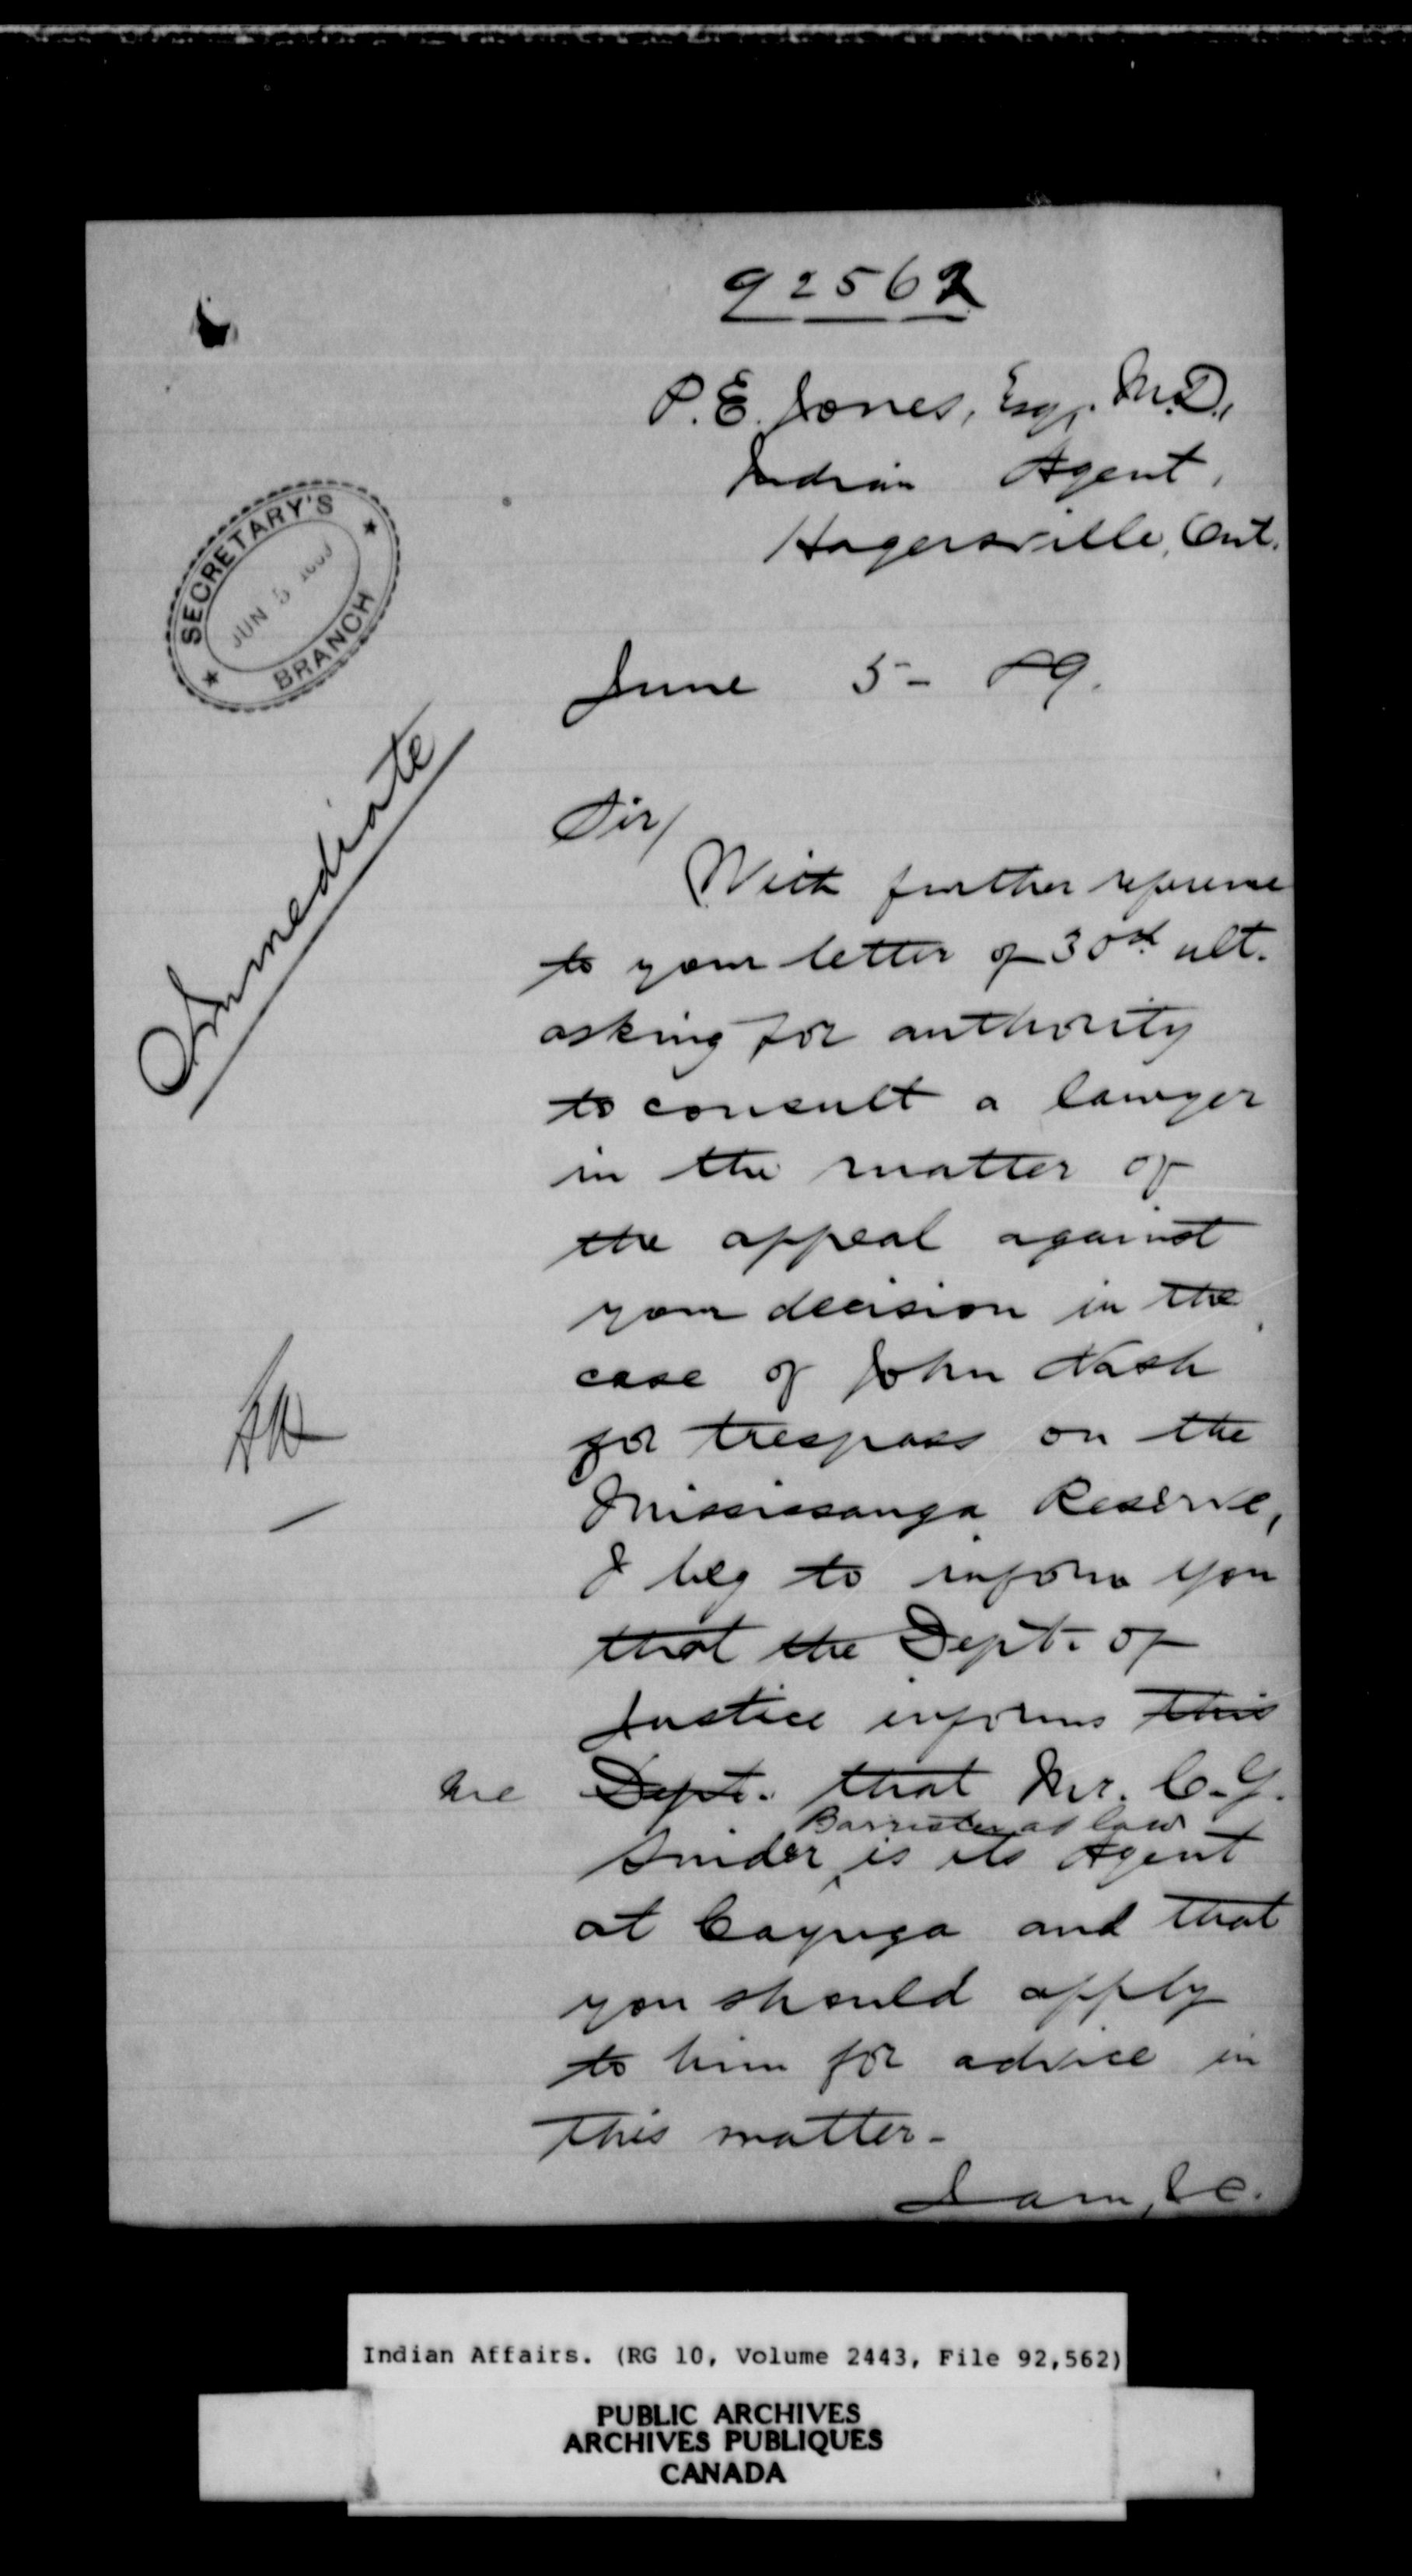 92562
P.E. Jones, Esq, M.D.,
Indian Agent,
Hagersville, Ont.
SECRETARY'S
JUN 5 1889
BRANCH
June 5 - 89.
Immediate
Sir/
With further reference
to your letter of 30th ult.
asking for authority
to consult a lawyer
in the matter of
the appeal against
your decision in the
case of John Nash
for trespass on the
Mississauga Reserve,
I beg to inform you
that the Dept. of
Justice informs this
me Dept. that Mr. C. G.
Barrister at law
Snider, is its Agent
at Cayuga and that
you should apply
to him for advice in
this matter -
I am, &c.
Indian Affairs. (RG 10, Volume 2443, File 92,562)
PUBLIC ARCHIVES
ARCHIVES PUBLIQUES
CANADA